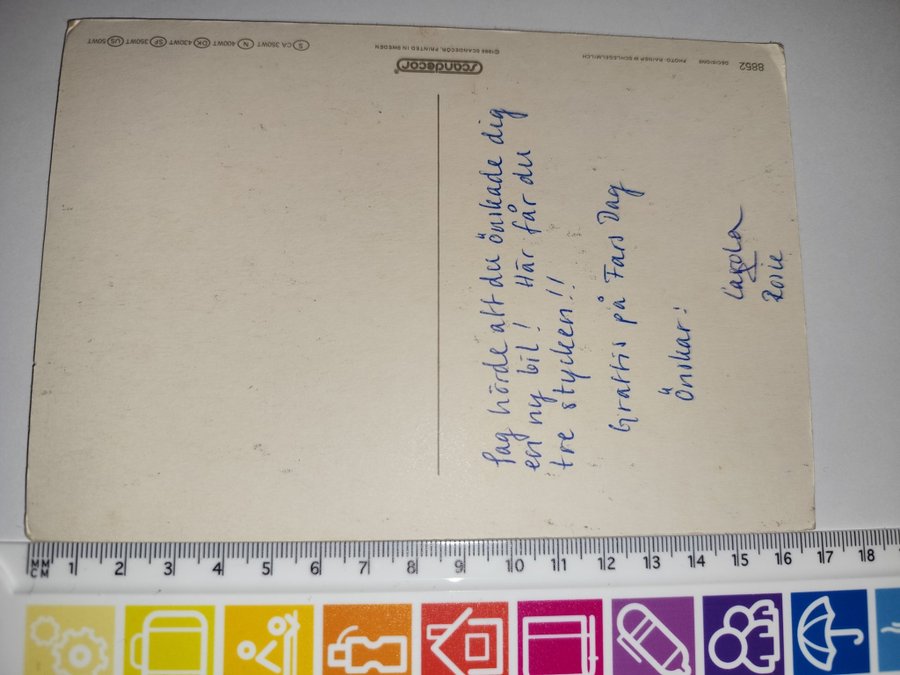 Jag hörde att du önskade dig
en ny bil! Här får du
tre stycken!!
Grattis på Fars Dag
Önskar!
Carola
8852
DECISIONS
PHOTO: RAINER W SCHLEGELMILCH
scandecor®
PRINTED IN SWEDEN
S CA 350WT N 400WT DK 430WT SF 350WT US 50WT
MM MM
CM
1 2 3 4 5 6 7 8 9 10 11 12 13 14 15 16 17 18